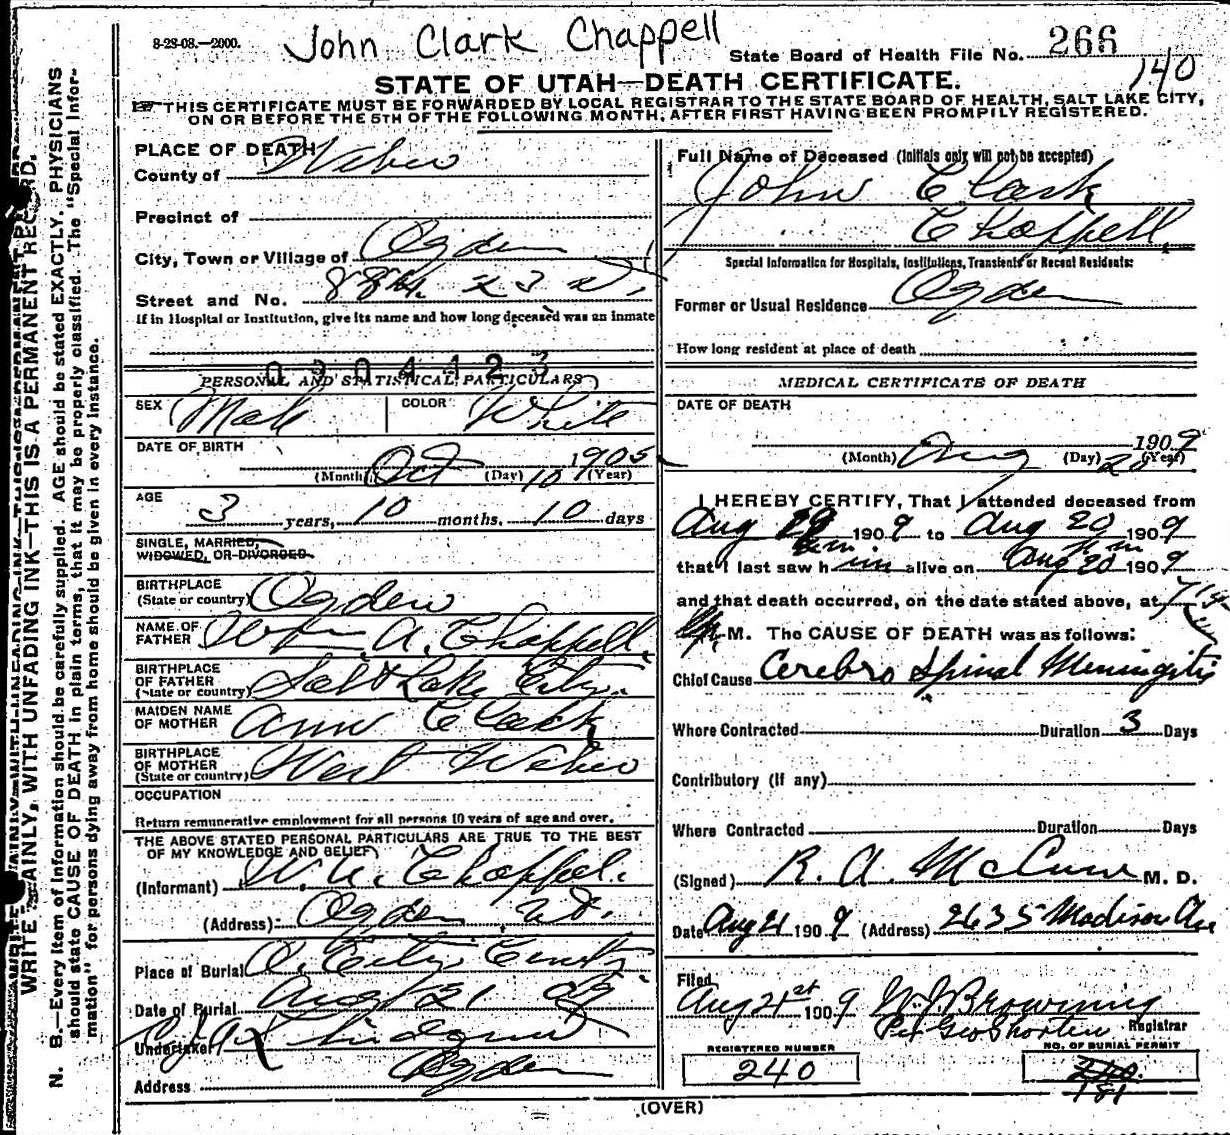 8-28-08.—2000.
John Clark Chappell
State Board of Health File No. 266
140
STATE OF UTAH—DEATH CERTIFICATE.
THIS CERTIFICATE MUST BE FORWARDED BY LOCAL REGISTRAR TO THE STATE BOARD OF HEALTH, SALT LAKE CITY,
ON OR BEFORE THE 5TH OF THE FOLLOWING MONTH, AFTER FIRST HAVING BEEN PROMPTLY REGISTERED.
WRITE PLAINLY, WITH UNFADING INK—THIS IS A PERMANENT RECORD.
N. B.—Every item of information should be carefully supplied. AGE should be stated EXACTLY. PHYSICIANS
should state CAUSE OF DEATH in plain terms, that it may be properly classified. The "Special Infor-
mation" for persons dying away from home should be given in every instance.
PLACE OF DEATH
County of Weber
Precinct of
City, Town or Village of Ogden
Street and No. 884 23
If in Hospital or Institution, give its name and how long deceased was an inmate
0904423
PERSONAL AND STATISTICAL PARTICULARS
SEX Male COLOR White
DATE OF BIRTH
(Month) Oct (Day) 10 1905 (Year)
AGE
3 years, 10 months, 10 days
SINGLE, MARRIED,
WIDOWED, OR DIVORCED
BIRTHPLACE
(State or country) Ogden
NAME OF
FATHER Wm A. Chappell
BIRTHPLACE
OF FATHER
(State or country) Salt Lake City
MAIDEN NAME
OF MOTHER Ann Clark
BIRTHPLACE
OF MOTHER
(State or country) West Weber
OCCUPATION
Return remunerative employment for all persons 10 years of age and over.
THE ABOVE STATED PERSONAL PARTICULARS ARE TRUE TO THE BEST
OF MY KNOWLEDGE AND BELIEF
(Informant) W. A. Chappell
(Address) Ogden, Ut.
Place of Burial O. City
Date of Burial Aug 21 09
Undertaker
Address Ogden
Full Name of Deceased (Initials only will not be accepted)
John Clark
Chappell
Special Information for Hospitals, Institutions, Transients or Recent Residents:
Former or Usual Residence Ogden
How long resident at place of death
MEDICAL CERTIFICATE OF DEATH
DATE OF DEATH
1909
(Month) Aug (Day) 20 (Year)
I HEREBY CERTIFY, That I attended deceased from
Aug 1909 to Aug 20 1909
that I last saw him alive on Aug 20 1909
and that death occurred, on the date stated above, at 7
P. M. The CAUSE OF DEATH was as follows:
Chief Cause Cerebro Spinal Meningitis
Where Contracted Duration 3 Days
Contributory (If any)
Where Contracted Duration Days
(Signed) R. A. McCune M. D.
Date Aug 21 1909 (Address) 2635 Madison Ave
Filed
Aug 21st 1909 W. J. Browning
Per Geo Shorten Registrar
REGISTERED NUMBER
240
NO. OF BURIAL PERMIT
240
181
(OVER)